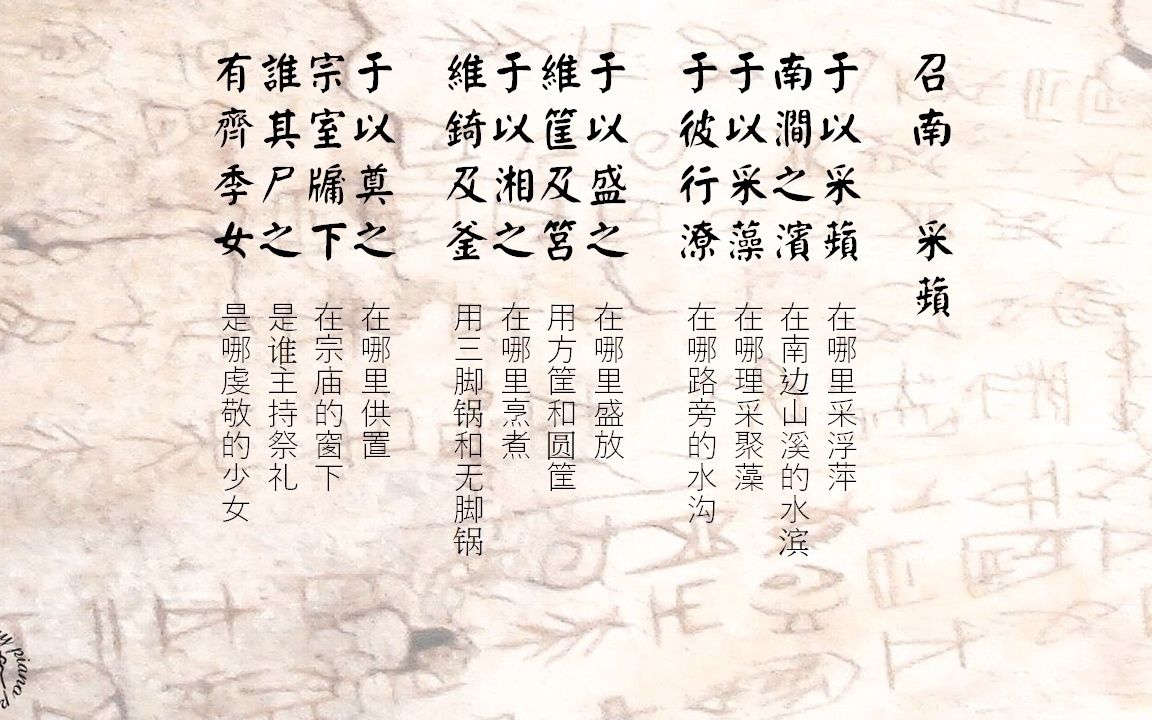 召南 采蘋
于以采蘋
南澗之濱
于以采藻
于彼行潦
在哪里采浮萍
在南边山溪的水滨
在哪理采聚藻
在哪路旁的水沟
于以盛之
維筐及筥
于以湘之
維錡及釜
在哪里盛放
用方筐和圆筐
在哪里烹煮
用三脚锅和无脚锅
于以奠之
宗室牖下
誰其尸之
有齊季女
在哪里供置
在宗庙的窗下
是谁主持祭礼
是哪虔敬的少女
piano